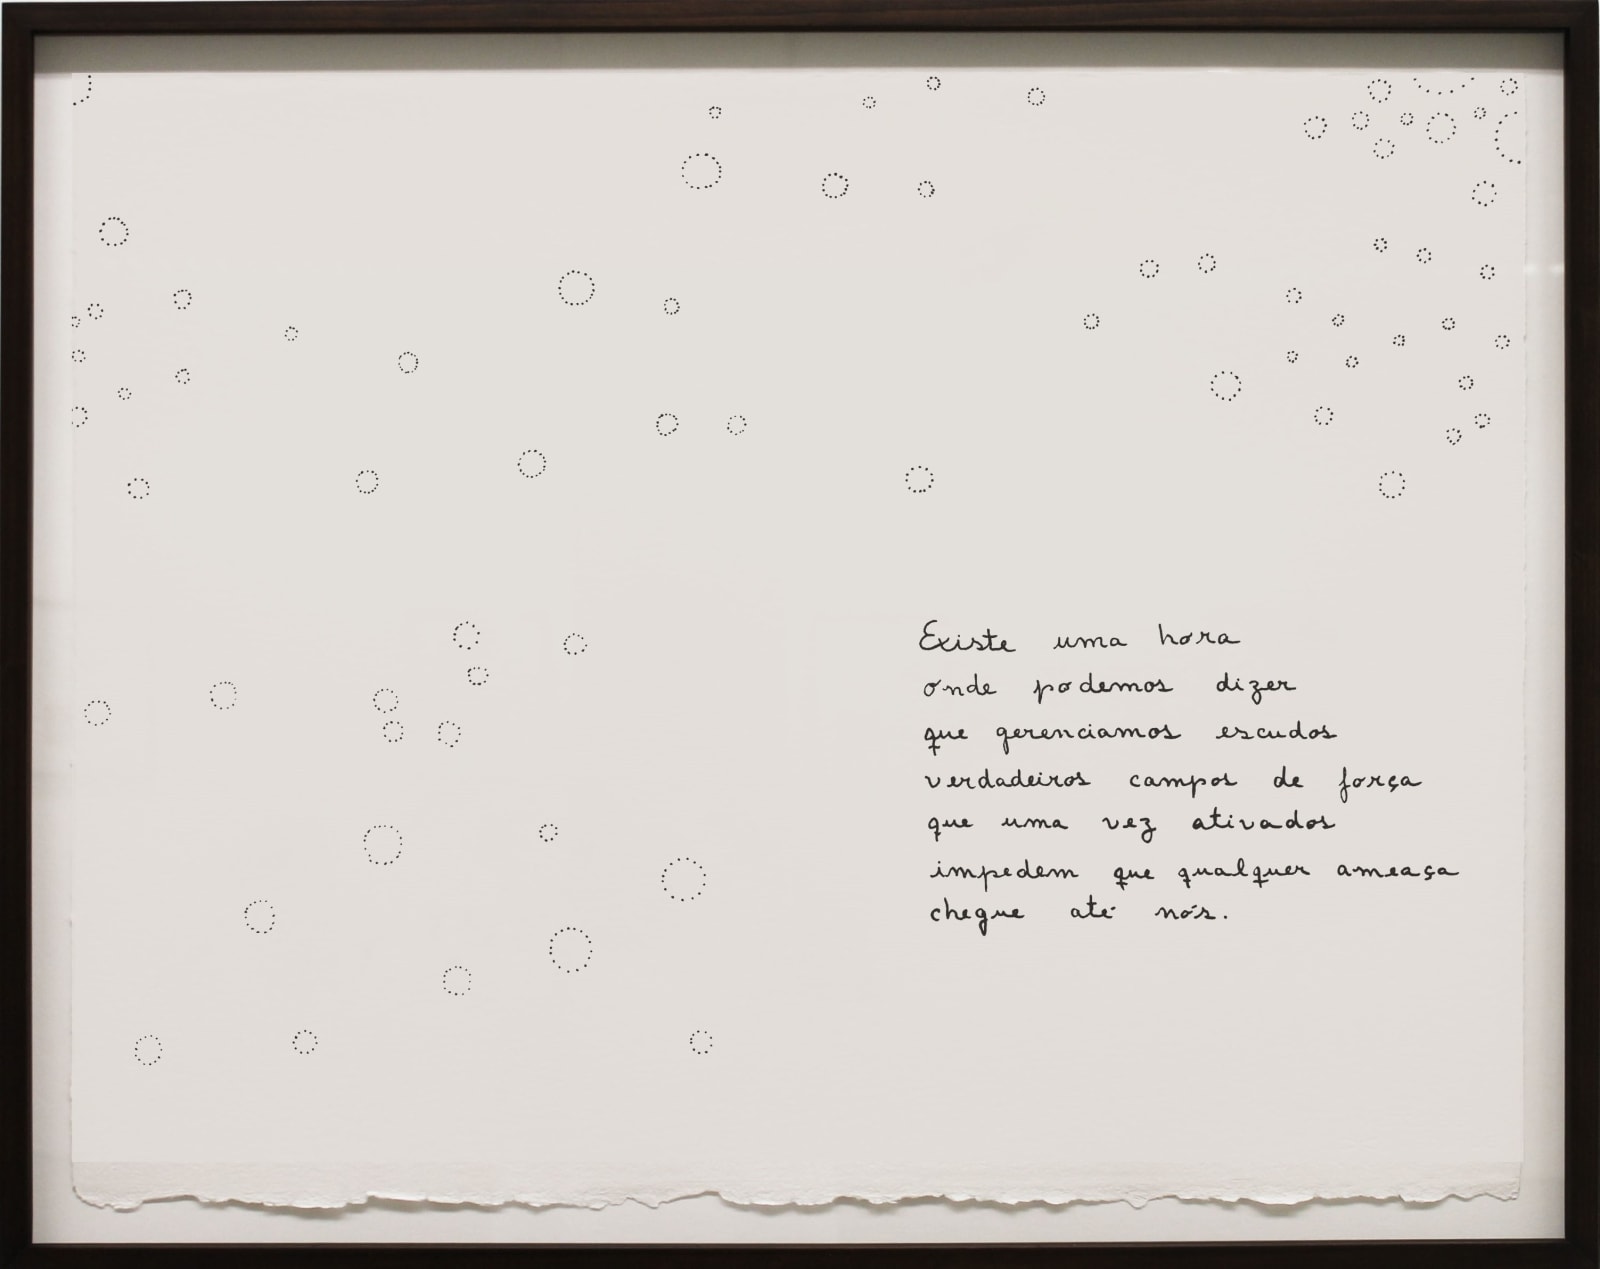 Existe uma hora
onde podemos dizer
que gerenciamos escudos
verdadeiros campos de força
que uma vez ativados
impedem que qualquer ameaça
chegue até nós.